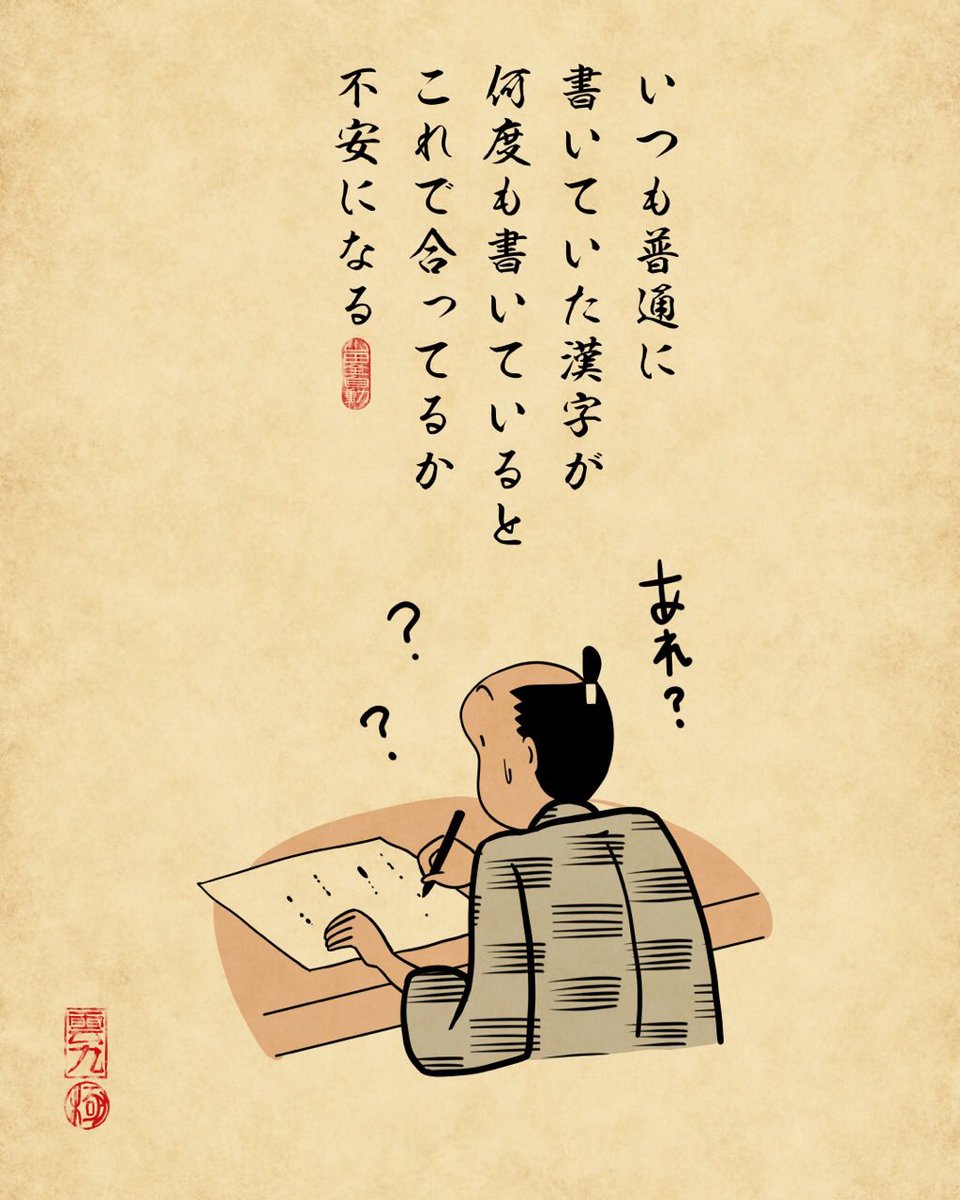 いつも普通に
書いていた漢字が
何度も書いていると
これで合ってるか
不安になる
あれ?
?
?
雲九
極